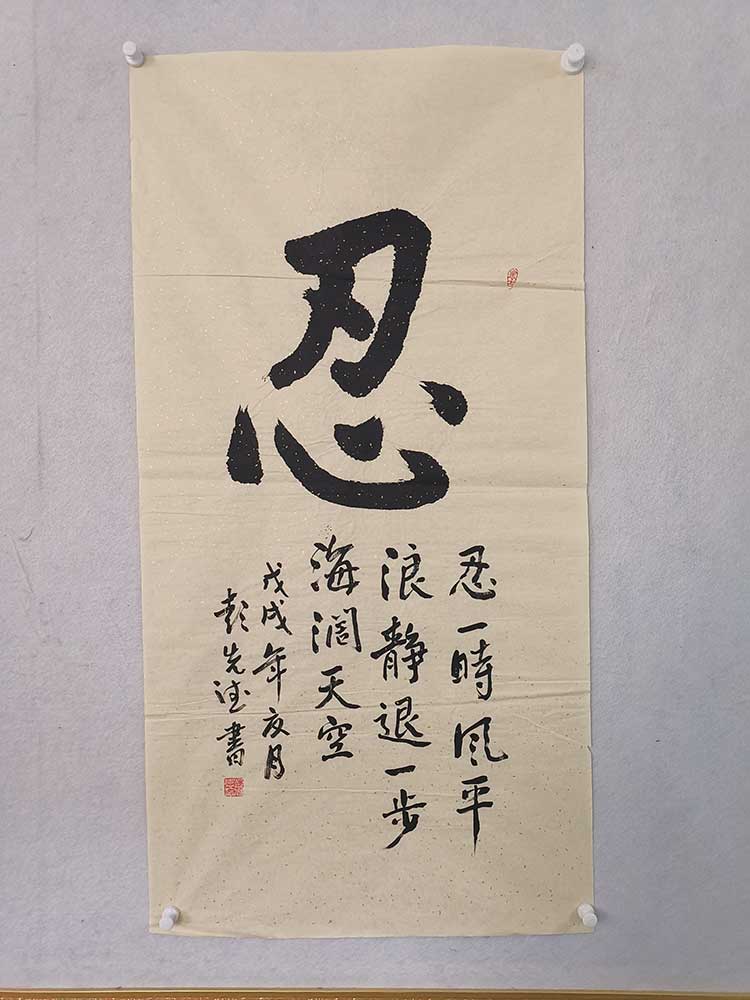 忍
忍一時风平
浪静退一步
海濶天空
戊戌年夏月
彭先書